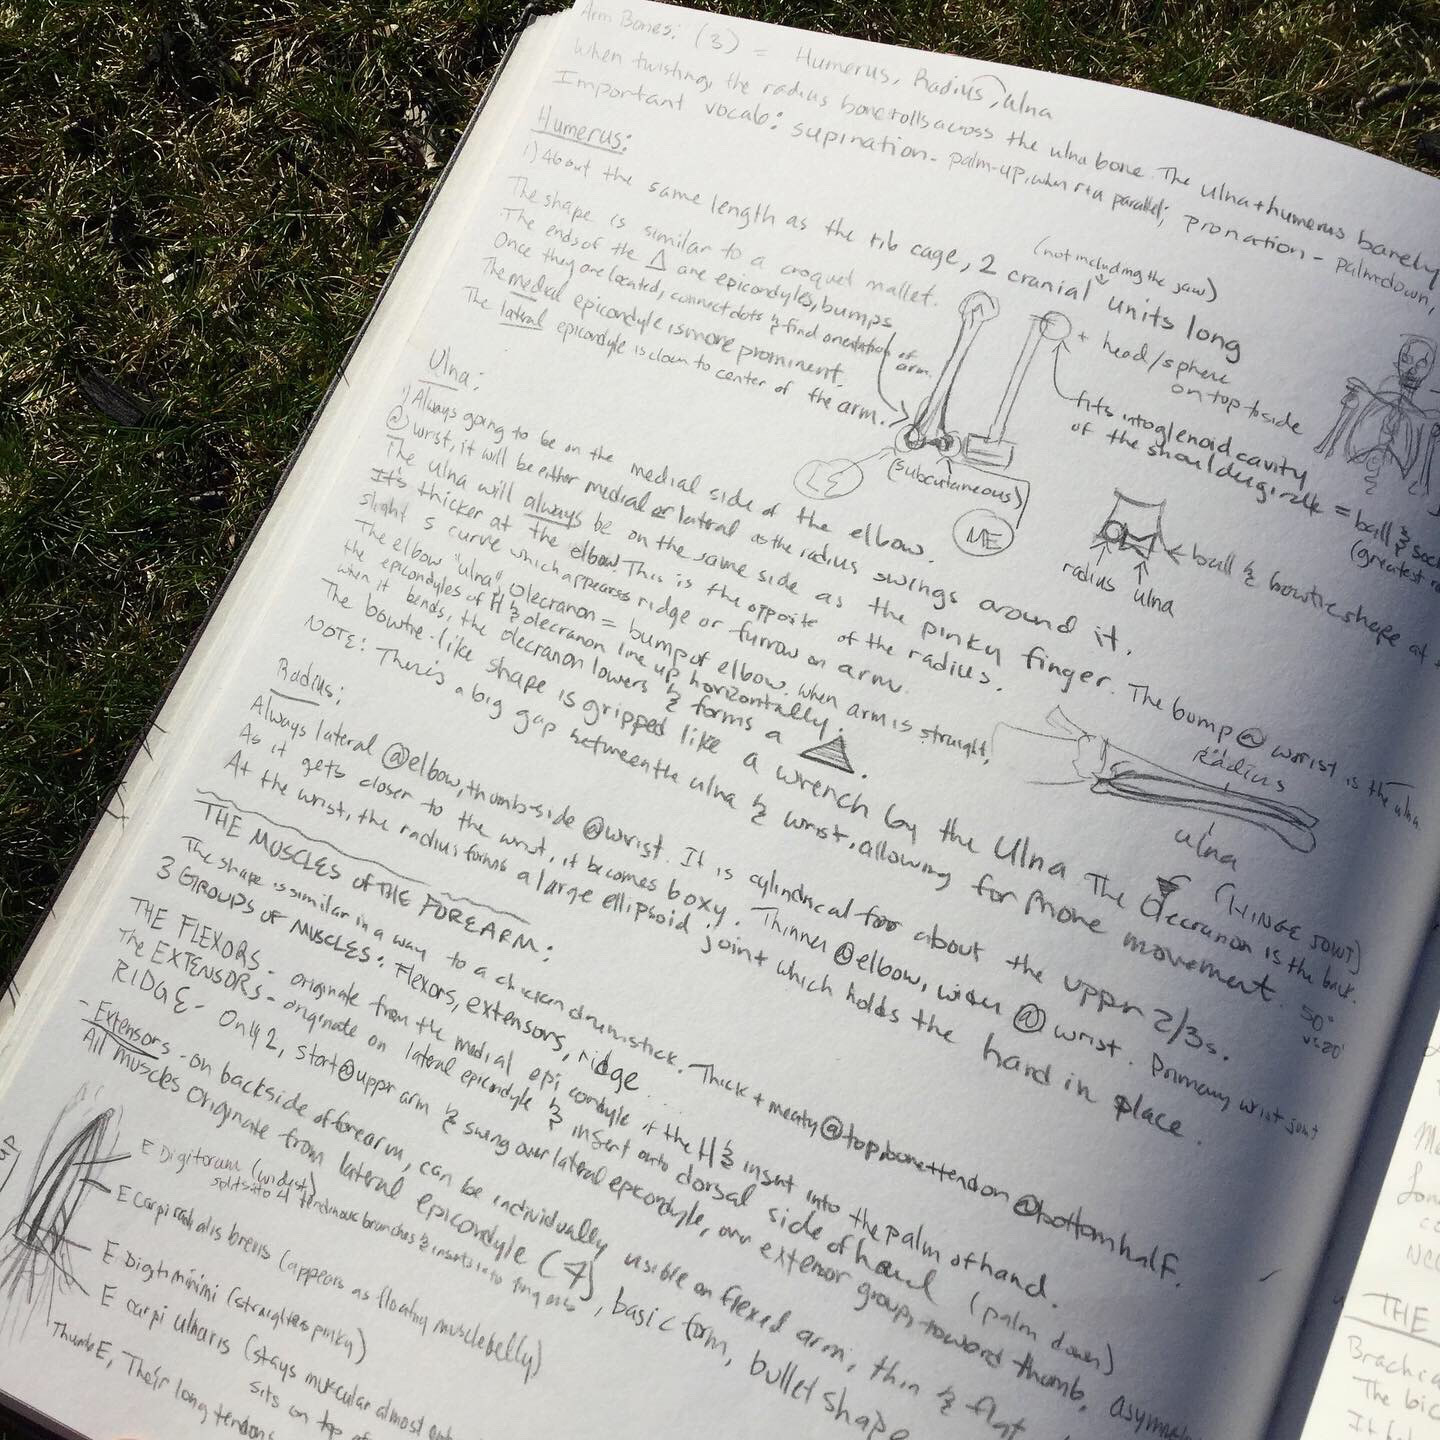 Arm Bones: (3) = Humerus, Radius, ulna
When twisting, the radius bone rolls across the ulna bone. The ulna + humerus barely
Important vocab: supination - palm-up, when r+u parallel; pronation - palm down,
Humerus:
1) About the same length as the rib cage, 2 cranial units long
(not including the jaw)
The shape is similar to a croquet mallet.
The ends of the Δ are epicondyles, bumps
Once they are located, connect dots & find orientation of arm.
The medial epicondyle is more prominent.
The lateral epicondyle is closer to center of the arm.
+ head/sphere
on top to side
fits into glenoid cavity
of the shoulder girdle = ball &
(greatest
LE
(subcutaneous)
ME
radius
ulna
ball & bowtie shape at
Ulna:
1) Always going to be on the medial side of the elbow.
@ wrist, it will be either medial or lateral as the radius swings around it.
The ulna will always be on the same side as the pinky finger. The bump @ wrist is the ulna
It's thicker at the elbow. This is the opposite of the radius.
slight s curve which appears ridge or furrow on arm.
The elbow "ulna", Olecranon = bump of elbow. When arm is straight,
the epicondyles of H & olecranon line up horizontally.
when it bends, the olecranon lowers & forms a
The bowtie-like shape is gripped like a wrench by the Ulna. The Olecranon is the back.
(HINGE JOINT)
NOTE: There's a big gap between the ulna & wrist, allowing for more movement.
50°
vs 20°
Radius
ulna
Radius:
Always lateral @ elbow, thumb-side @ wrist. It is cylindrical for about the uppr 2/3s.
As it gets closer to the wrist, it becomes boxy. Thinner @ elbow, wider @ wrist. Primary wrist joint
At the wrist, the radius forms a large ellipsoid joint which holds the hand in place.
THE MUSCLES of THE FOREARM:
The shape is similar in a way to a chicken drumstick. Thick + meaty @ top, bone + tendon @ bottom half.
3 GROUPS OF MUSCLES: Flexors, extensors, ridge
THE FLEXORS - originate from the medial epicondyle of the H & insert into the palm of hand.
The EXTENSORS - originate on lateral epicondyle & insert onto dorsal side of hand (palm down)
RIDGE - Only 2, start @ uppr arm & swing over lateral epicondyle, over extensor group, toward thumb,
- Extensors - on backside of forearm, can be individually visible on flexed arm, thin & flat
All muscles originate from lateral epicondyle (7), basic form, bullet shape
E Digitorum (widest)
splits into 4 tendinous branches & inserts into fingers
E carpi radialis brevis (appears as floating muscle belly)
E Digiti minimi (straightens pinky)
E carpi ulnaris (stays muscular almost
sits on top of
Thumb E, Their long tendons
THE
Brachia
The bic